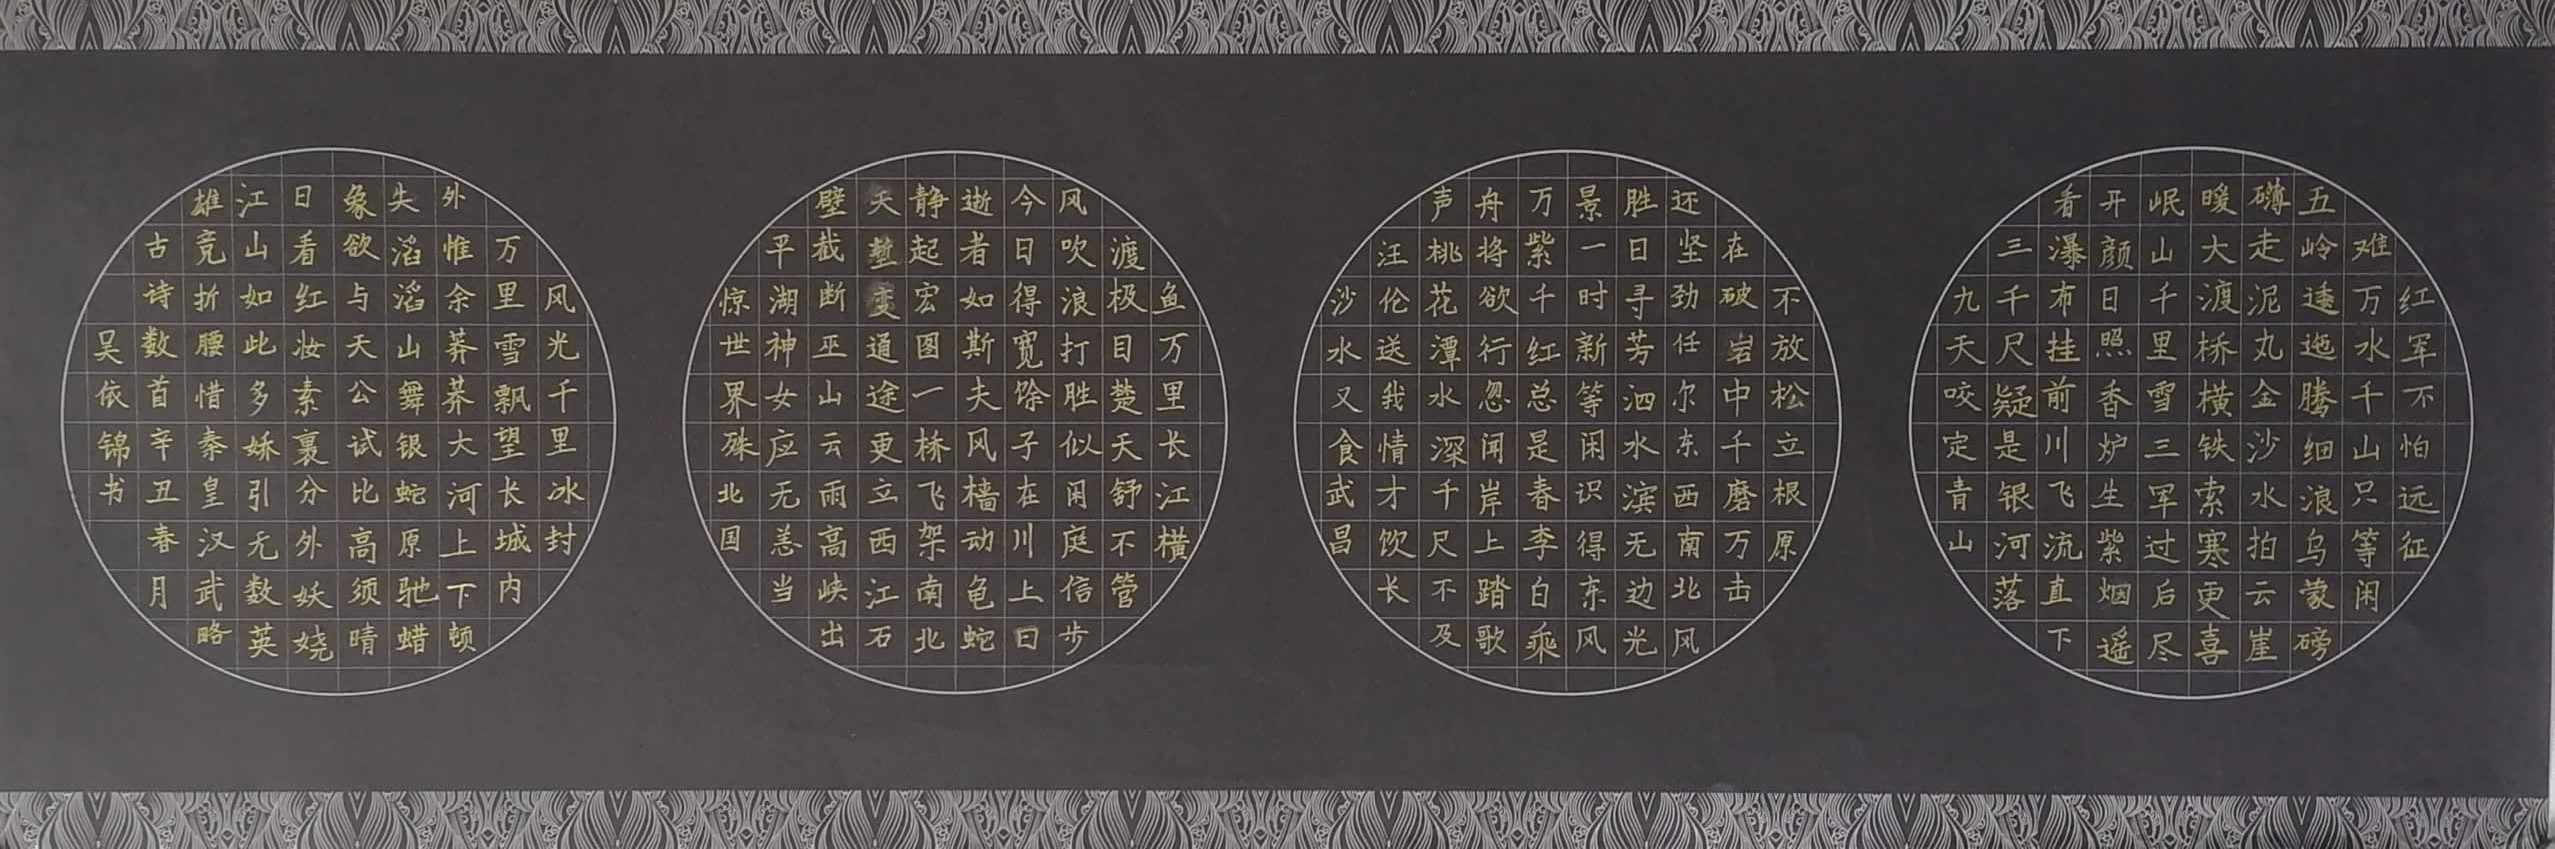 红军不怕远征
难万水千山只等闲
五岭逶迤腾细浪乌蒙磅
礴走泥丸金沙水拍云崖
暖大渡桥横铁索寒更喜
岷山千里雪三军过后尽
开颜日照香炉生紫烟遥
看瀑布挂前川飞流直下
三千尺疑是银河落
九天咬定青山
不放松立根原
在破岩中千磨万击
还坚劲任尔东西南北风
胜日寻芳泗水滨无边光
景一时新等闲识得东风
万紫千红总是春李白乘
舟将欲行忽闻岸上踏歌
声桃花潭水深千尺不及
汪伦送我情才饮长
沙水又食武昌
鱼万里长江横
渡极目楚天舒不管
风吹浪打胜似闲庭信步
今日得宽馀子在川上曰
逝者如斯夫风樯动龟蛇
静起宏图一桥飞架南北
天堑变通途更立西江石
壁截断巫山云雨高峡出
平湖神女应无恙当
惊世界殊北国
风光千里冰封
万里雪飘望长城内
外惟余莽莽大河上下顿
失滔滔山舞银蛇原驰蜡
象欲与天公试比高须晴
日看红妆素裹分外妖娆
江山如此多娇引无数英
雄竞折腰惜秦皇汉武略
古诗数首辛丑春月
吴依锦书